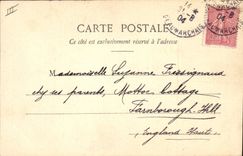 III
CARTE POSTALE
Ce côté est exclusivement réservé à l'adresse
BEAUMARCHAIS
04
04
Mademoiselle Suzanne Fressignaud
chez ses parents, Mottoc Cottage
Farnborough, Hill
England Hants